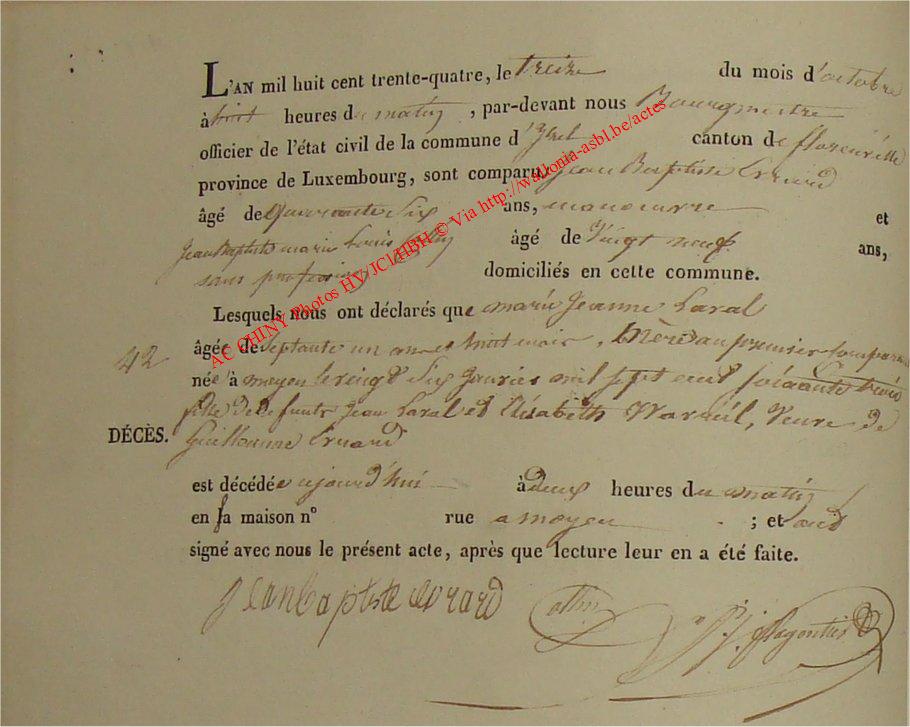 L'AN mil huit cent trente-quatre, le treize du mois d'octobre
à huit heures du matin, par-devant nous Bourgmestre
officier de l'état civil de la commune d'Izel canton de florenville
province de Luxembourg, sont comparus Jean Baptiste Evrard
âgé de quarante Six ans, manoeuvre et
Jean Baptiste marie Louis âgé de vingt neuf ans,
sans profession domiciliés en cette commune.
Lesquels nous ont déclarés que marie Jeanne Laval
42
âgée de septante un ans et huit mois, Mère au premier comparant
née à moyen le vingt Six Janvier mil sept cent soixante trois
fille de defunts Jean Laval et Elisabeth Vve de
DÉCÈS.
Guillaume Evrard
est décédée aujourd'hui à deux heures du matin
en sa maison n° rue a moyen ; et ont
signé avec nous le présent acte, après que lecture leur en a été faite.
Jean baptiste evrard
AC CHINY Photos HV/JCl/HBH © Via http://wallonia-asbl.be/actes